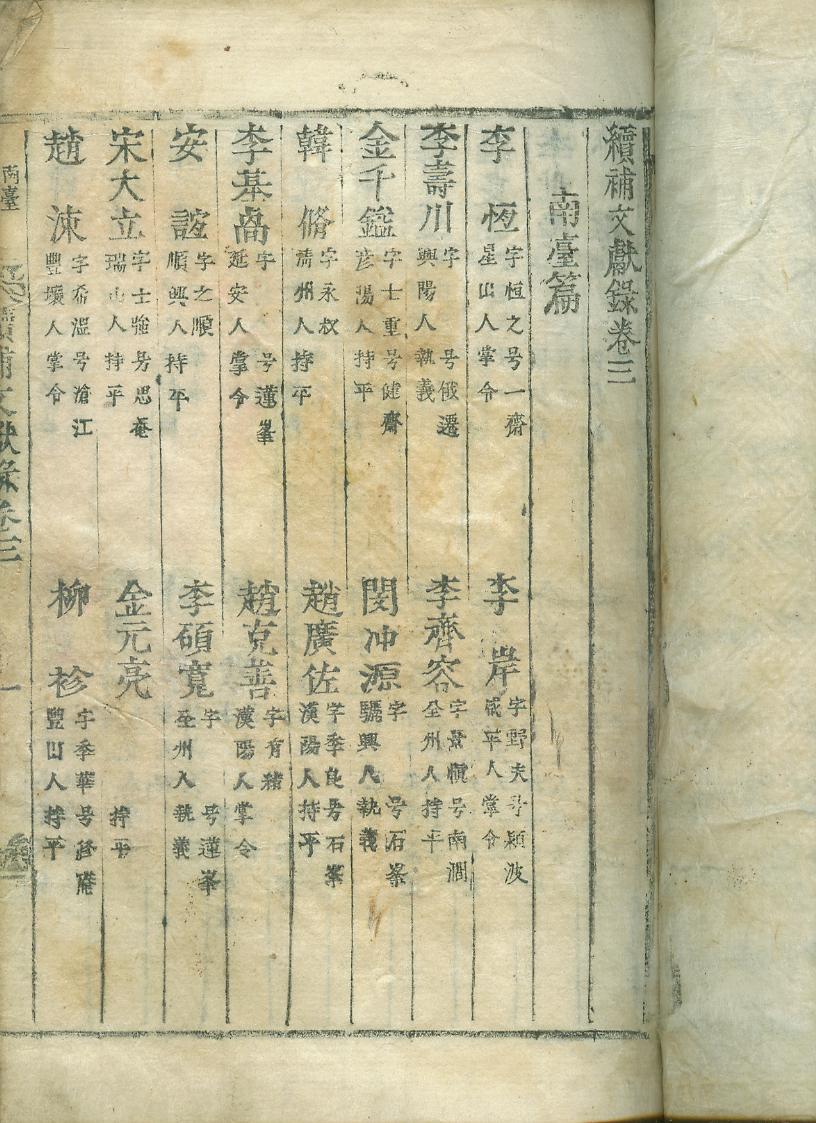 續補文獻錄卷三
南臺篇
李恆 字恒之号一齋 星山人掌令
李岸 字野夫号潁波 咸平人掌令
李壽川 字 号俄遷 興陽人執義
李齊容 字景愼号南澗 全州人持平
金千鎰 字士重号健齋 彦陽人持平
閔冲源 字 号石峯 驪興人執義
韓脩 字永叔 淸州人持平
趙廣佐 字季良号石峯 漢陽人持平
李基卨 字 号蓮峯 延安人掌令
趙克善 字有諸 漢陽人掌令
安諠 字之順 順興人持平
李碩寬 字 号蓮峯 全州人執義
宋大立 字士強号思菴 瑞山人持平
金元亮 持平
趙涑 字希溫号滄江 豐壤人掌令
柳袗 字季華号修巖 豐山人持平
南臺 續補文獻錄卷三 一